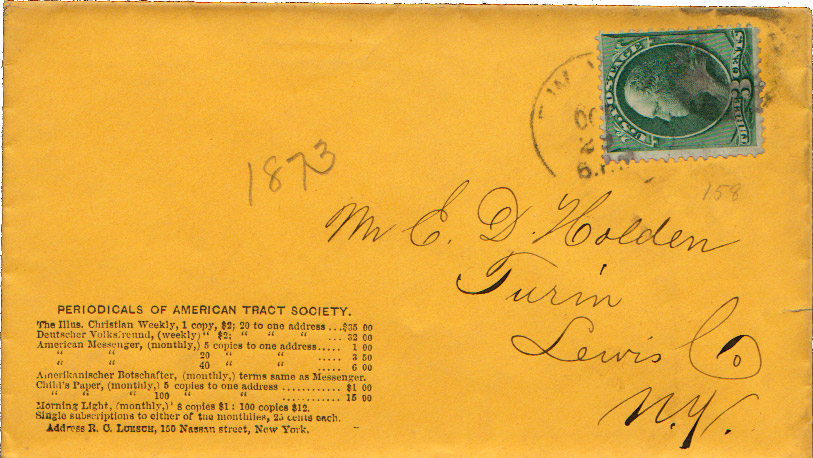 U.S. POSTAGE
THREE 3 CENTS
2
6.P.M
1873
158
Mr E. D. Holden
Turin
Lewis Co
N.Y.
PERIODICALS OF AMERICAN TRACT SOCIETY.
The Illus. Christian Weekly, 1 copy, $2; 20 to one address ...$35 00
Deutscher Volksfreund, (weekly) " $2; " " " ... 32 00
American Messenger, (monthly,) 5 copies to one address..... 1 00
" " 20 " " ..... 3 50
" " 40 " " ..... 6 00
Amerikanischer Botschafter, (monthly,) terms same as Messenger.
Child's Paper, (monthly,) 5 copies to one address ............ $1 00
" " " 100 " " ............ 15 00
Morning Light, (monthly,) 8 copies $1: 100 copies $12.
Single subscriptions to either of the monthlies, 25 cents each.
Address R. C. LOESCH, 150 Nassau street, New York.